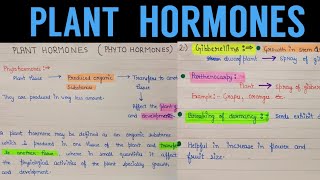 PLANT HORMONES
PLANT HORMONES (PHYTO HORMONES)
Phytohormones :-
Plant tissue → Produced organic Substances → Transfere to another tissue
They are produced in very less amount.
Affect the Plant
and development
A plant hormone may be defined as an organic substance
which is produced in one tissue of the plant and transfer
to another tissue where in small quantities it affect
the physiological activities of the plant specially growth
and development.
2.) Gibberellins :→ Growth in stem
plant → Spray of
Parthenocarpy :-
Plant → Spray of gibb
Example :- Grapes, oranges etc.
Breaking of dormancy :- Seeds exhibit d
Helpful in increase in flower and
fruit size.